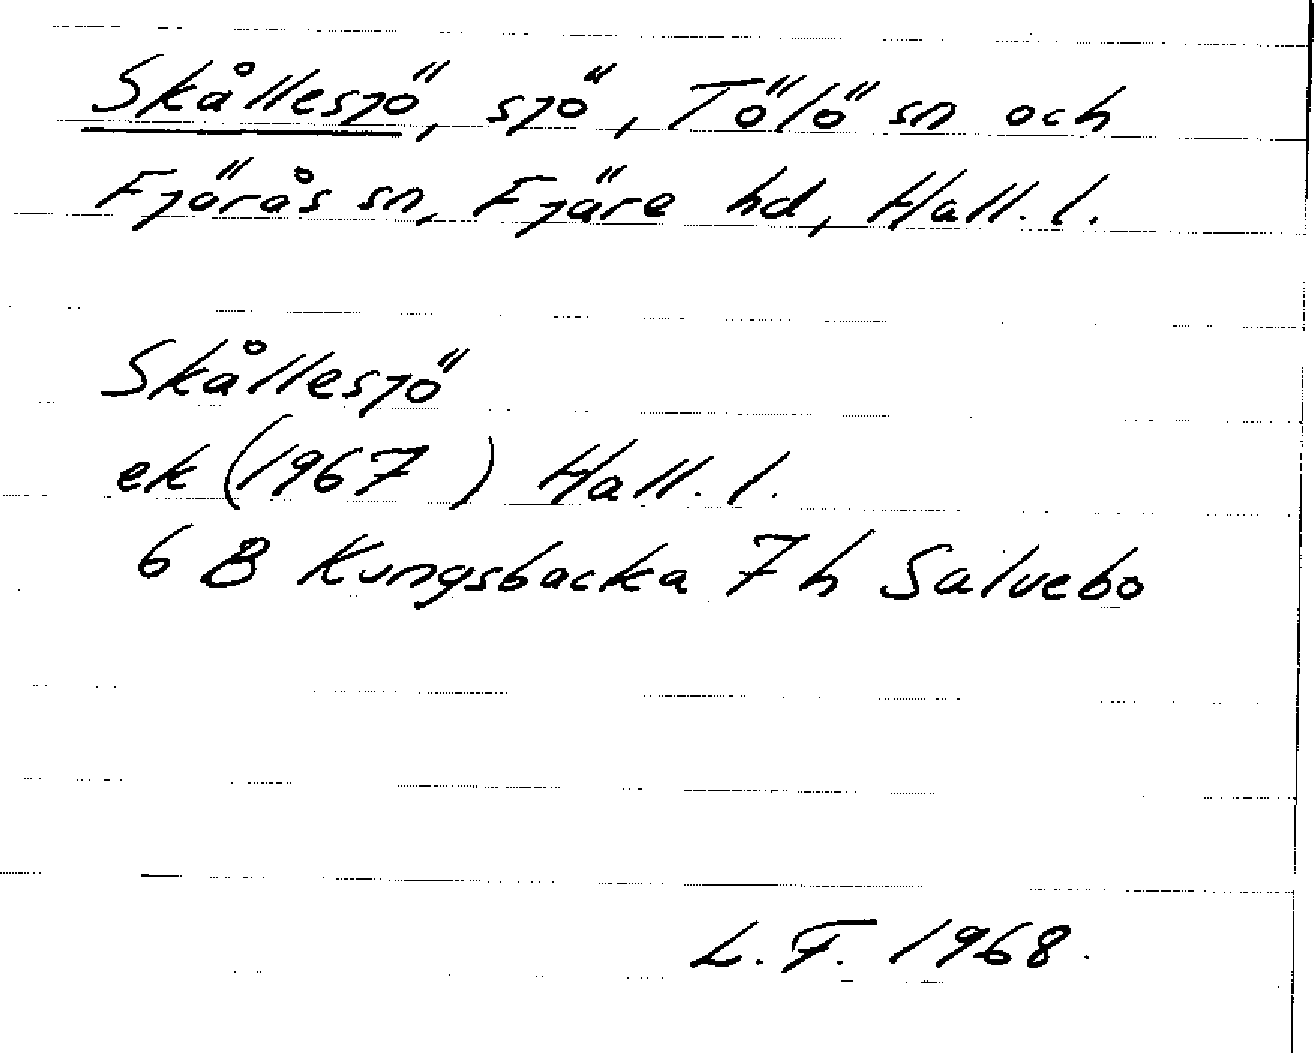 Skållesjö, sjö, Tölö sn och
Fjärås sn, Fjäre hd, Hall. l.
Skållesjö
ek (1967 ) Hall. l.
6 B Kungsbacka 7 h Salvebo
L. F. 1968.